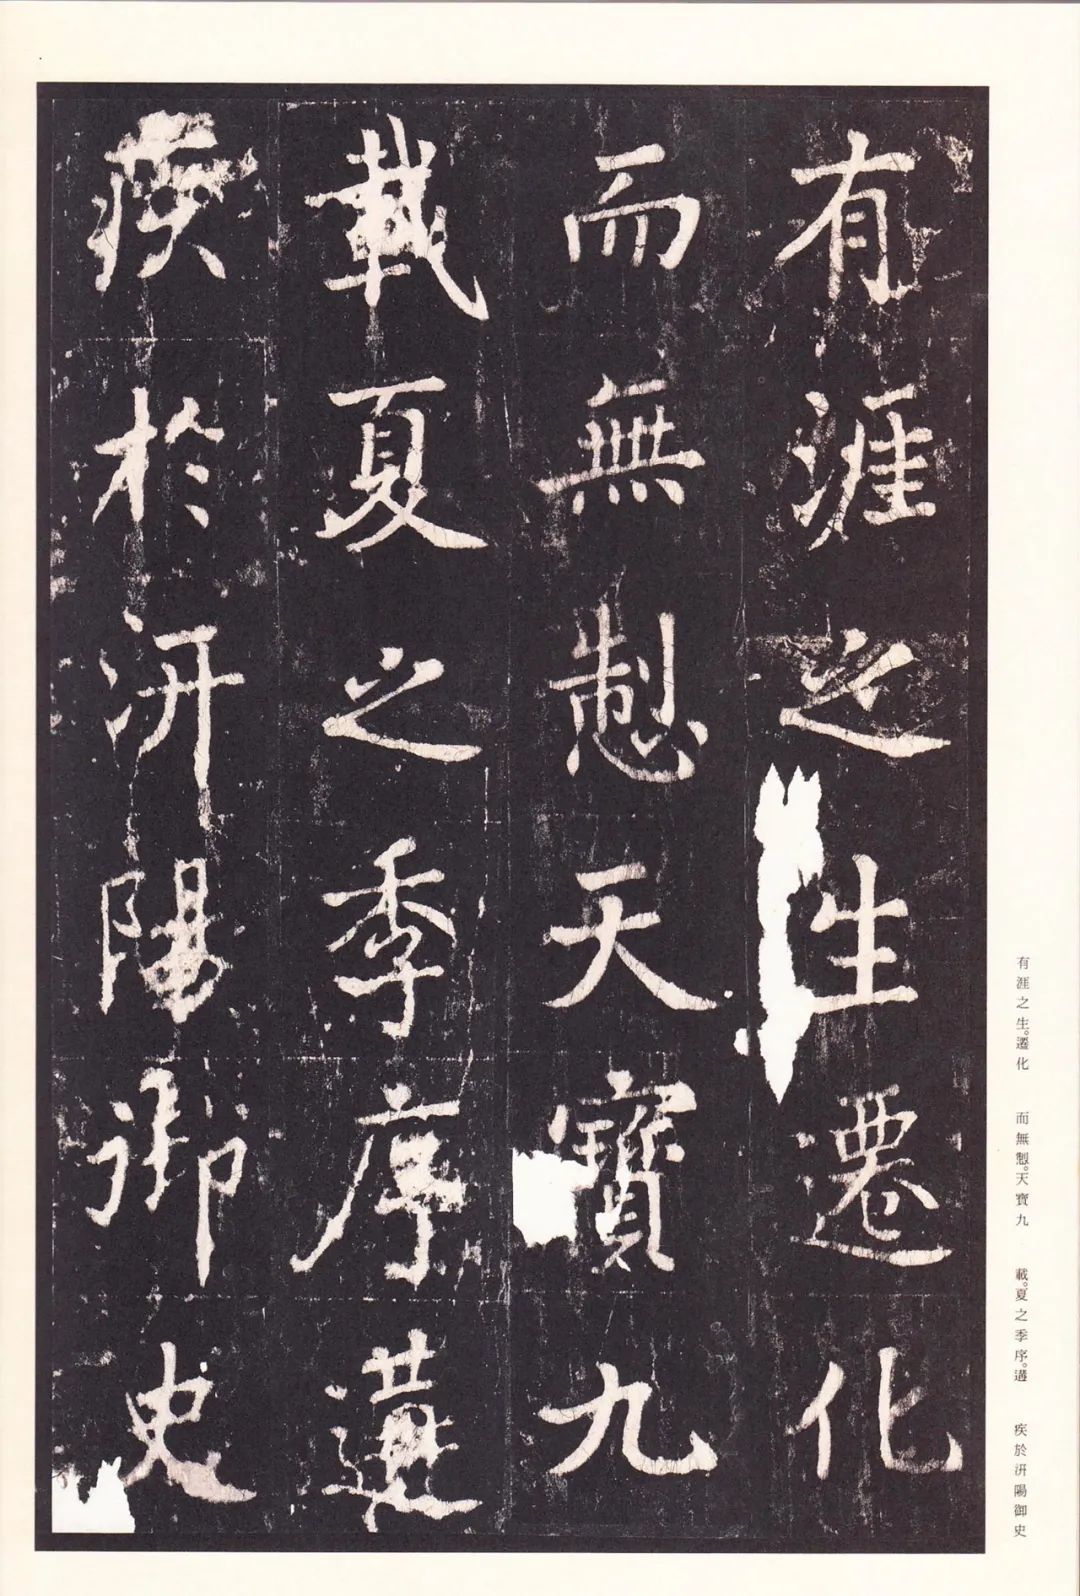 有涯之生遷化
而無制天寶九
載夏之季序遘
疾於汧陽御史
有涯之生。遷化 而無制。天寶九 載。夏之季序。遘 疾於汧陽御史